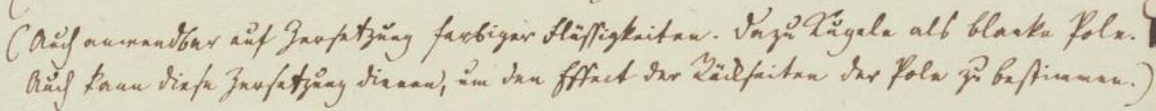 (Auch anwendbar auf Zersetzung farbiger Flüssigkeiten. Dazu Kugeln als blanke Pole.
Auch kann diese Zersetzung dienen, um den Effect der Rückseiten der Pole zu bestimmen.)